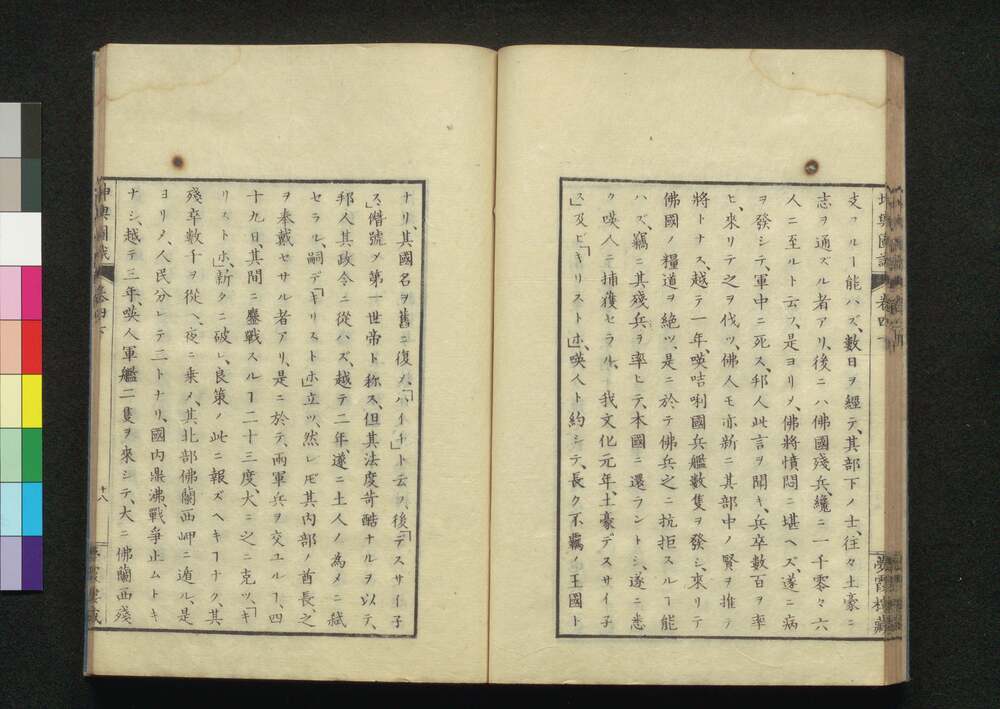 支フルヿ能ハズ、數日ヲ經テ、其部下ノ士、往々土豪ニ
志ヲ通ズル者アリ、後ニハ佛國殘兵、纔ニ一千零々六
人ニ至ルト云フ、是ヨリメ、佛將憤悶ニ堪ヘズ、遂ニ病
ヲ發シテ、軍中ニ死ス、邦人此言ヲ聞キ、兵卒數百ヲ率
ヒ、來リテ之ヲ伐ツ、佛人モ亦新ニ其部中ノ賢ヲ推テ
將トナス、越テ一年、暎咭唎國兵艦數隻ヲ發シ、來リテ
佛國ノ糧道ヲ絶ツ、是ニ於テ佛兵之ニ抗拒スルヿ能
ハズ、竊ニ其殘兵ヲ率ヒテ、本國ニ還ラントシ、遂ニ悉
ク暎人ニ捕獲セラル、我文化元年、土豪デスサイ子
」ス及ビ「キリストホ」、暎人ト約シテ、長ク不羈ノ王國ト
ナリ、其國名ヲ舊ニ復メ、「ハイチ」ト云フ、後「デスサイ子
」ス僭號メ第一世帝ト稱ス、但其法度苛酷ナルヲ以テ、
邦人其政令ニ從ハズ、越テ二年遂ニ土人ノ為メニ弑
セラル、嗣デ「キリストホ」立ツ、然レ𪜈其内部ノ酋長、之
ヲ奉戴セサル者アリ、是ニ於テ、兩軍兵ヲ交ユルヿ、四
十九日、其間ニ鏖戰スルヿ二十三度、大ニ之ニ克ツ、「キ
リストホ」新タニ破レ、良策ノ此ニ報ズヘキヿナク、其
殘卒數千ヲ從ヘ、夜ニ乘メ、其北部佛蘭西岬ニ遁ル、是
ヨリメ、人民分レテ二トナリ、國内鼎沸戰爭止ムトキ
ナシ、越テ三年、暎人軍艦二隻ヲ來シテ、大ニ佛蘭西殘
十八